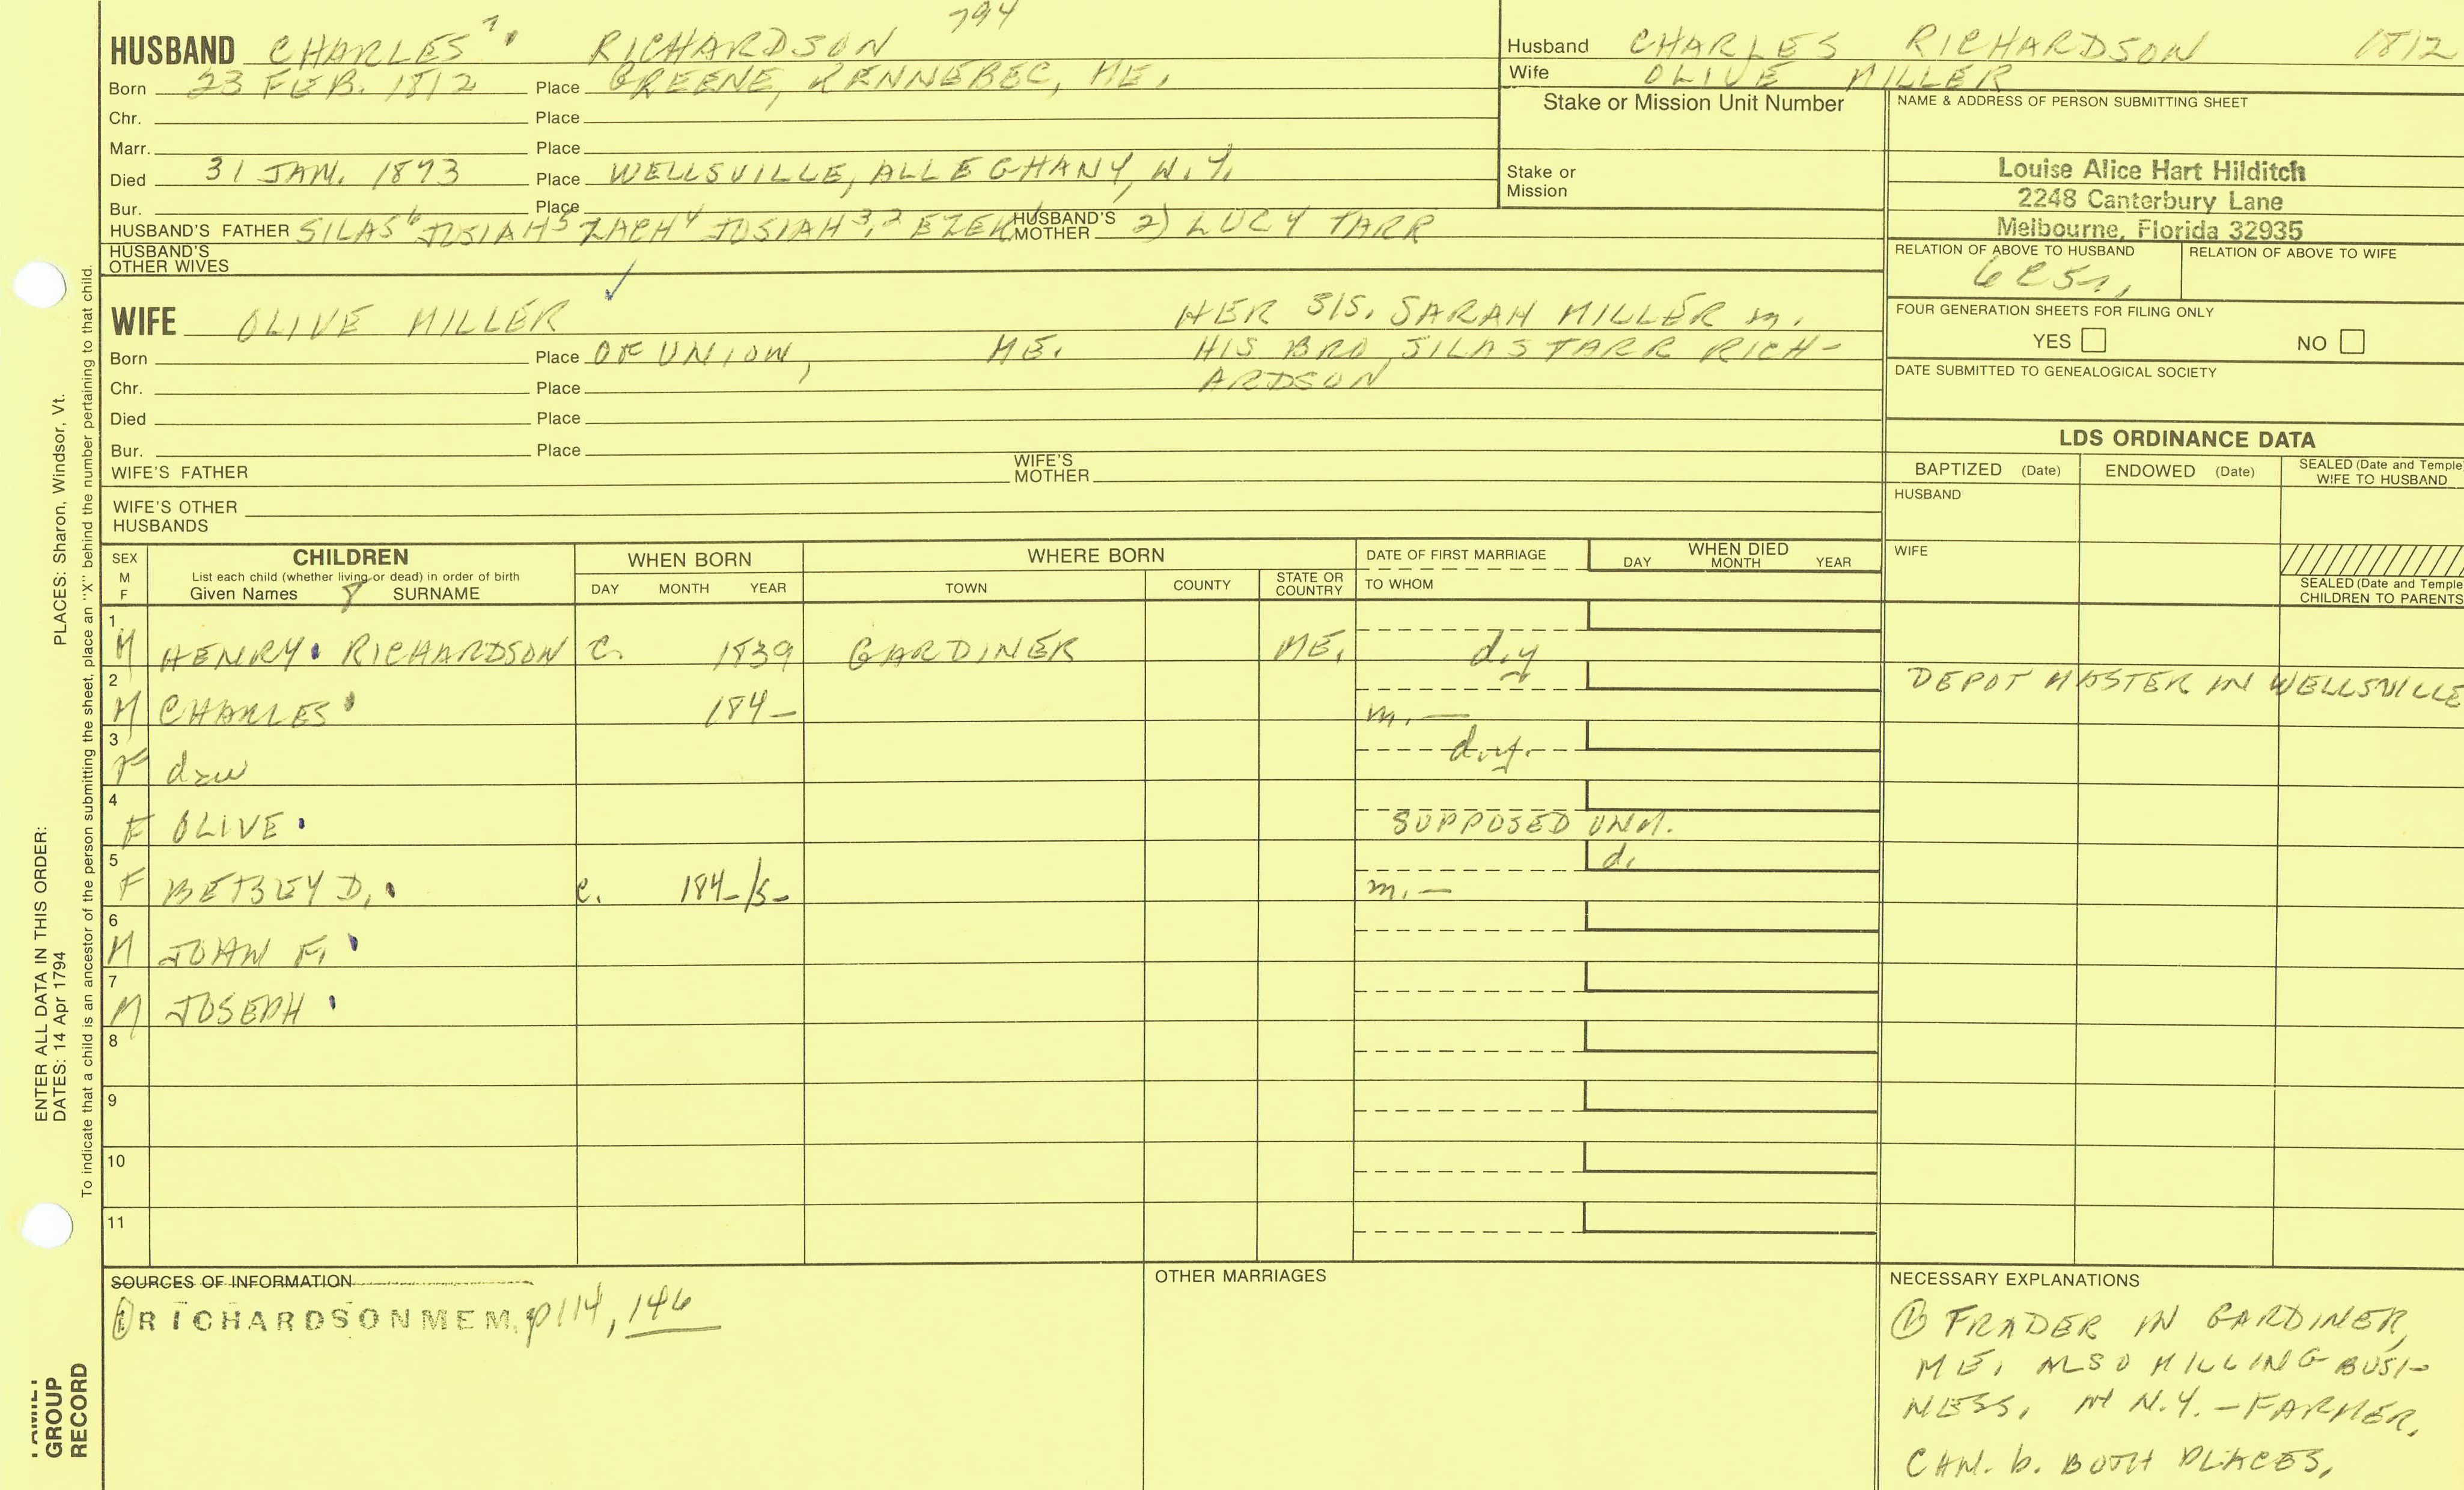 794
HUSBAND CHARLES 7. RICHARDSON
Born 23 FEB. 1812 Place GREENE, KENNEBEC, ME.
Chr. Place
Marr. Place
Died 31 JAN. 1893 Place WELLSVILLE, ALLEGHANY, N.Y.
Bur. Place
HUSBAND'S FATHER SILAS 6 JOSIAH 5 ZACH 4 JOSIAH 3,2 EZEK HUSBAND'S MOTHER 2) LUCY TARR
HUSBAND'S OTHER WIVES
WIFE OLIVE MILLER
HER SIS. SARAH MILLER m.
Born Place OF UNION, ME. HIS BRO SILAS TARR RICH-
ARDSON
Chr. Place
Died Place
Bur. Place
WIFE'S FATHER WIFE'S MOTHER
WIFE'S OTHER HUSBANDS
Husband CHARLES RICHARDSON 1812
Wife OLIVE MILLER
Stake or Mission Unit Number
Stake or Mission
NAME & ADDRESS OF PERSON SUBMITTING SHEET
Louise Alice Hart Hilditch
2248 Canterbury Lane
Melbourne, Florida 32935
RELATION OF ABOVE TO HUSBAND RELATION OF ABOVE TO WIFE
FOUR GENERATION SHEETS FOR FILING ONLY
YES NO
DATE SUBMITTED TO GENEALOGICAL SOCIETY
LDS ORDINANCE DATA
BAPTIZED (Date) ENDOWED (Date) SEALED (Date and Temple
WIFE TO HUSBAND
HUSBAND
WIFE
SEALED (Date and Temple
CHILDREN TO PARENTS
SEX M F
CHILDREN
List each child (whether living or dead) in order of birth
Given Names 8 SURNAME
WHEN BORN
DAY MONTH YEAR
WHERE BORN
TOWN COUNTY STATE OR COUNTRY
DATE OF FIRST MARRIAGE
TO WHOM
WHEN DIED
DAY MONTH YEAR
1 M HENRY. RICHARDSON C. 1839 GARDINER ME. d.y
2 M CHARLES 184- m. — DEPOT MASTER IN WELLSVILLE
3 F dau d.y.
4 F OLIVE. SUPPOSED UNM.
5 F BETSEY D. c. 184-/5- m. — d.
6 M JOHN F.
7 M JOSEPH
8
9
10
11
SOURCES OF INFORMATION
1 RICHARDSON MEM. p114, 146
OTHER MARRIAGES
NECESSARY EXPLANATIONS
1 TRADER IN GARDINER,
ME, ALSO MILLING BUSI-
NESS, IN N.Y. - FARMER,
CHN. b. BOTH PLACES,
PLACES: Sharon, Windsor, Vt.
ENTER ALL DATA IN THIS ORDER:
DATES: 14 Apr 1794
To indicate that a child is an ancestor of the person submitting the sheet, place an "X" behind the number pertaining to that child.
FAMILY
GROUP
RECORD